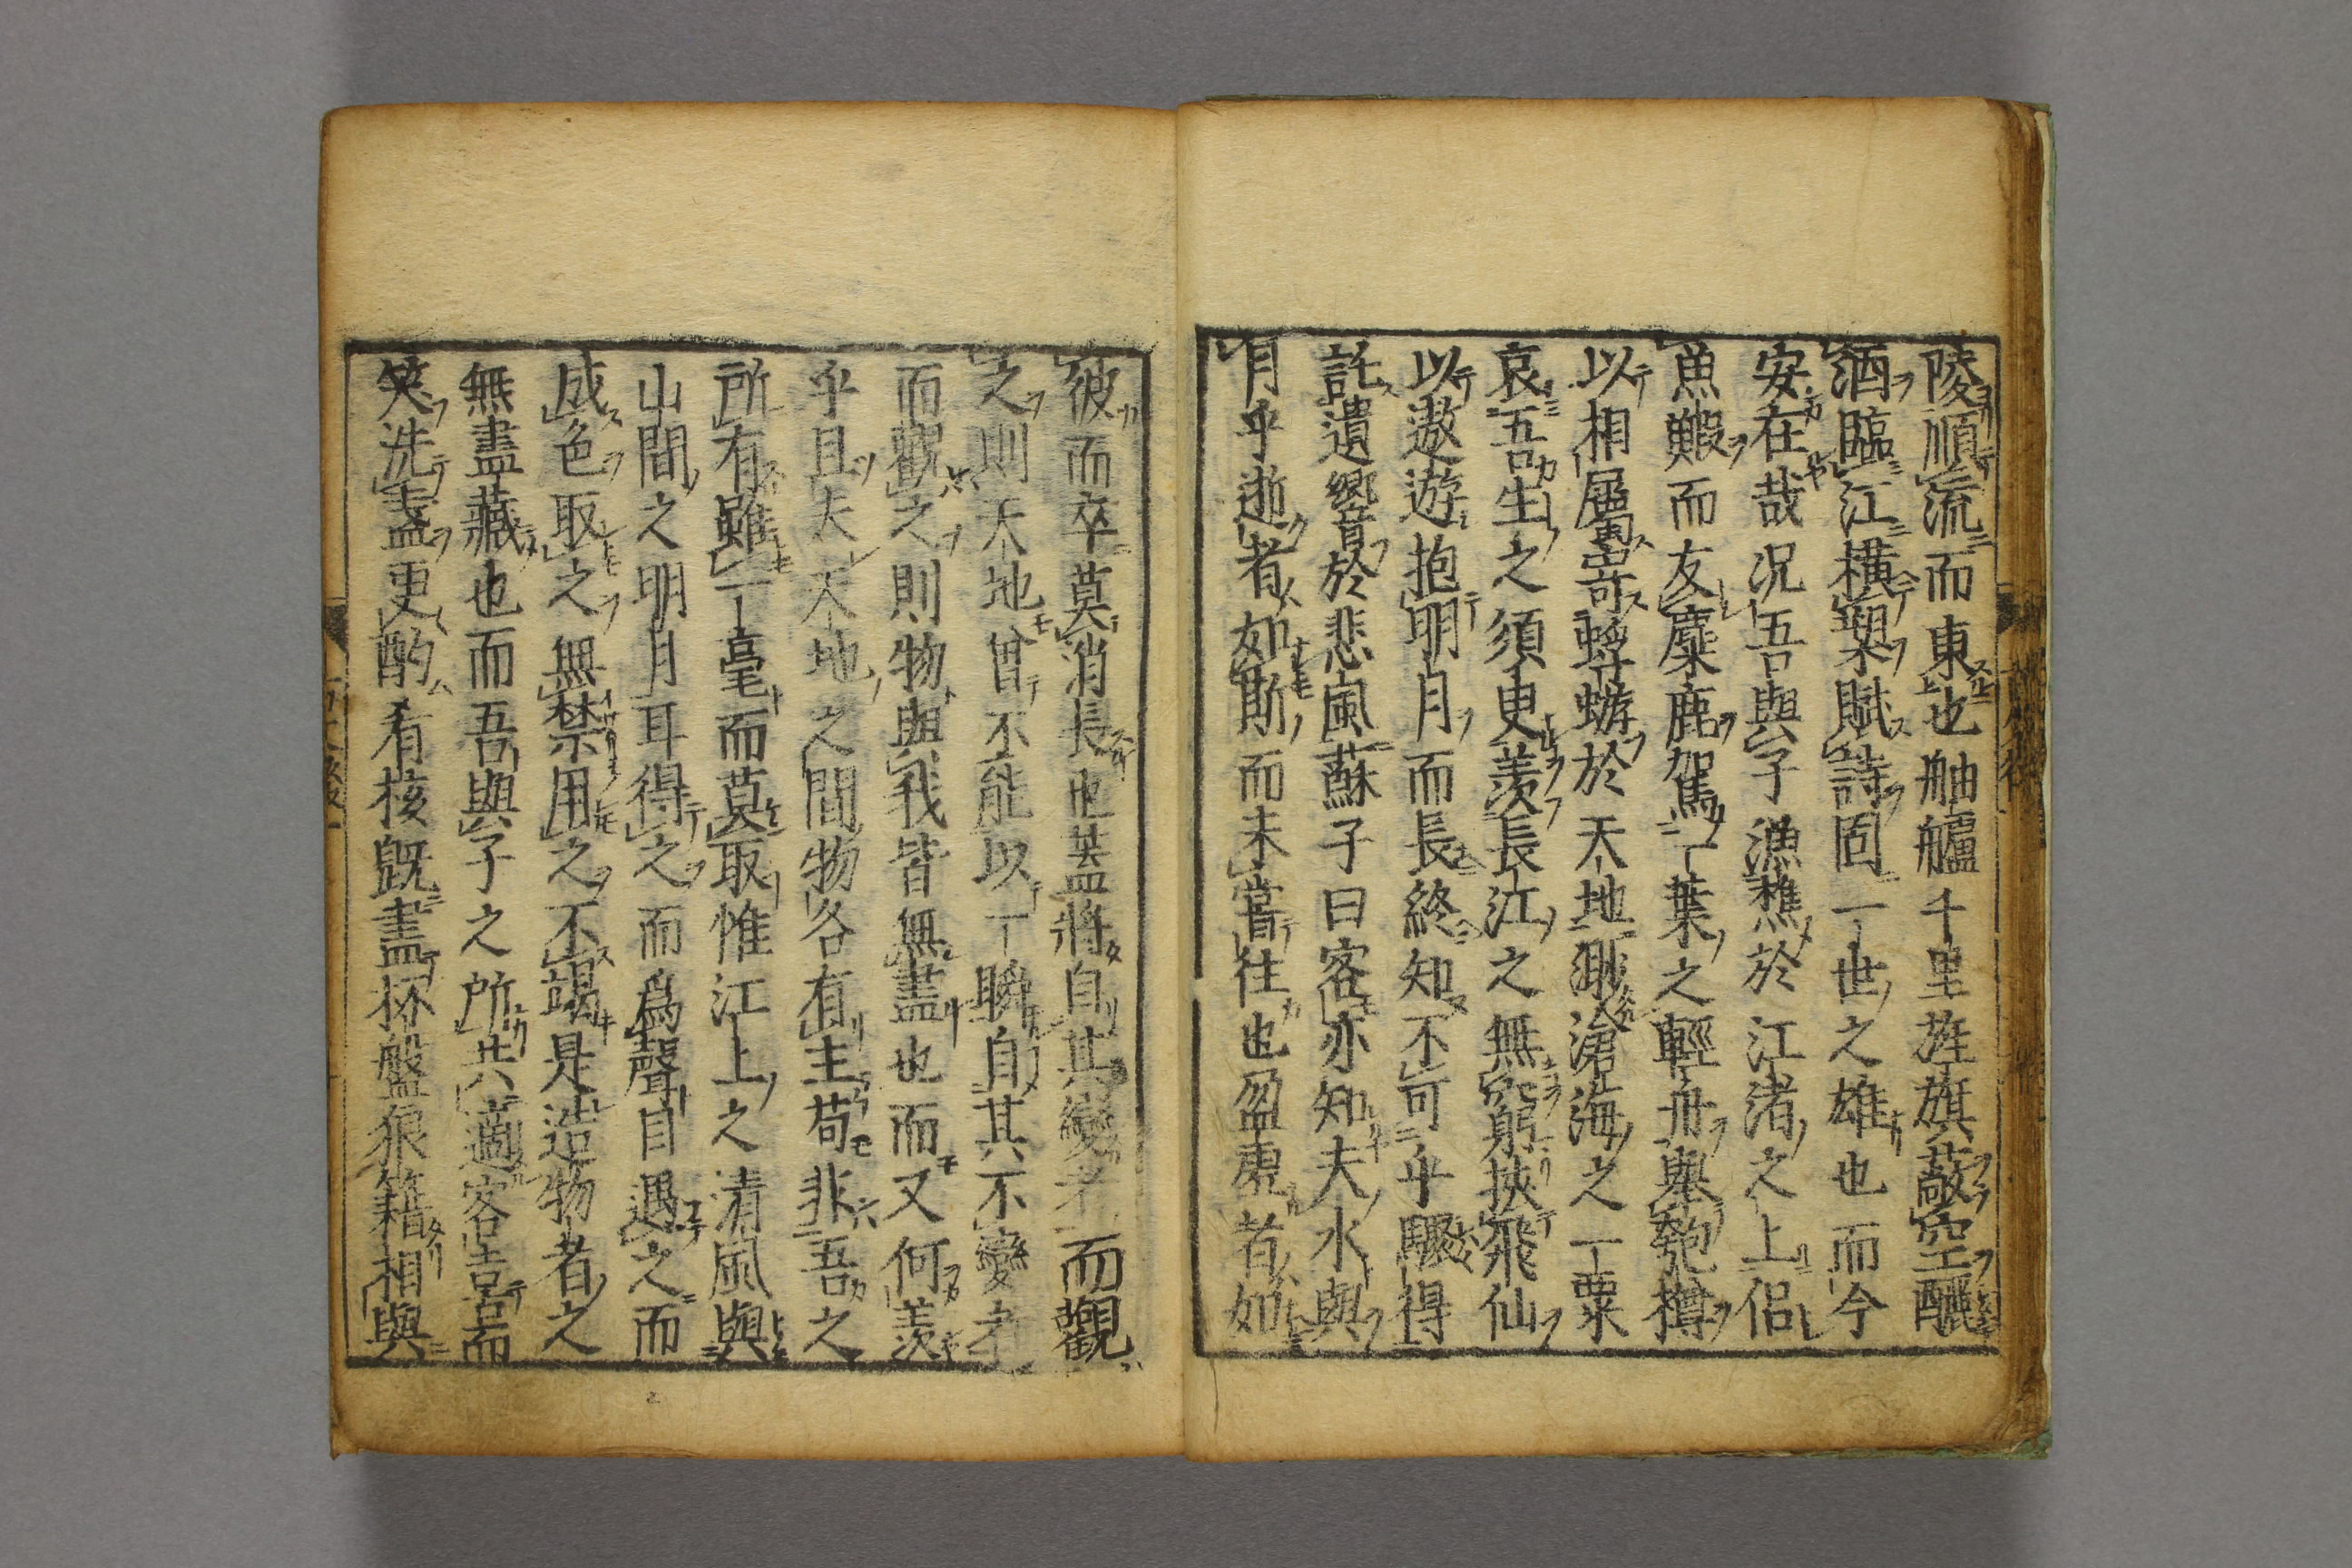 陵順流而東也舳艫千里旌旗蔽空釃
酒臨江橫槊賦詩固一世之雄也而今
安在哉況吾與子漁樵於江渚之上侶
魚鰕而友麋鹿駕一葉之輕舟舉匏樽
以相屬寄蜉蝣於天地渺滄海之一粟
哀吾生之須臾羨長江之無窮挾飛仙
以遨遊抱明月而長終知不可乎驟得
託遺響於悲風蘇子曰客亦知夫水與
月乎逝者如斯而未嘗往也盈虛者如
彼而卒莫消長也蓋將自其變者而觀
之則天地曾不能以一瞬自其不變者
而觀之則物與我皆無盡也而又何羨
乎且夫天地之間物各有主苟非吾之
所有雖一毫而莫取惟江上之清風與
山間之明月耳得之而為聲目遇之而
成色取之無禁用之不竭是造物者之
無盡藏也而吾與子之所共適客喜而
笑洗盞更酌肴核既盡杯盤狼籍相與